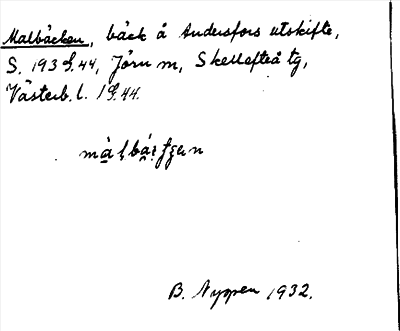 Malbäcken, bäck å Andersfors utskifte,
S. 193 9.44, Jörn sn, Skellefteå tg,
Västerb. l. 1 9.44.
B. Nyman 1932.